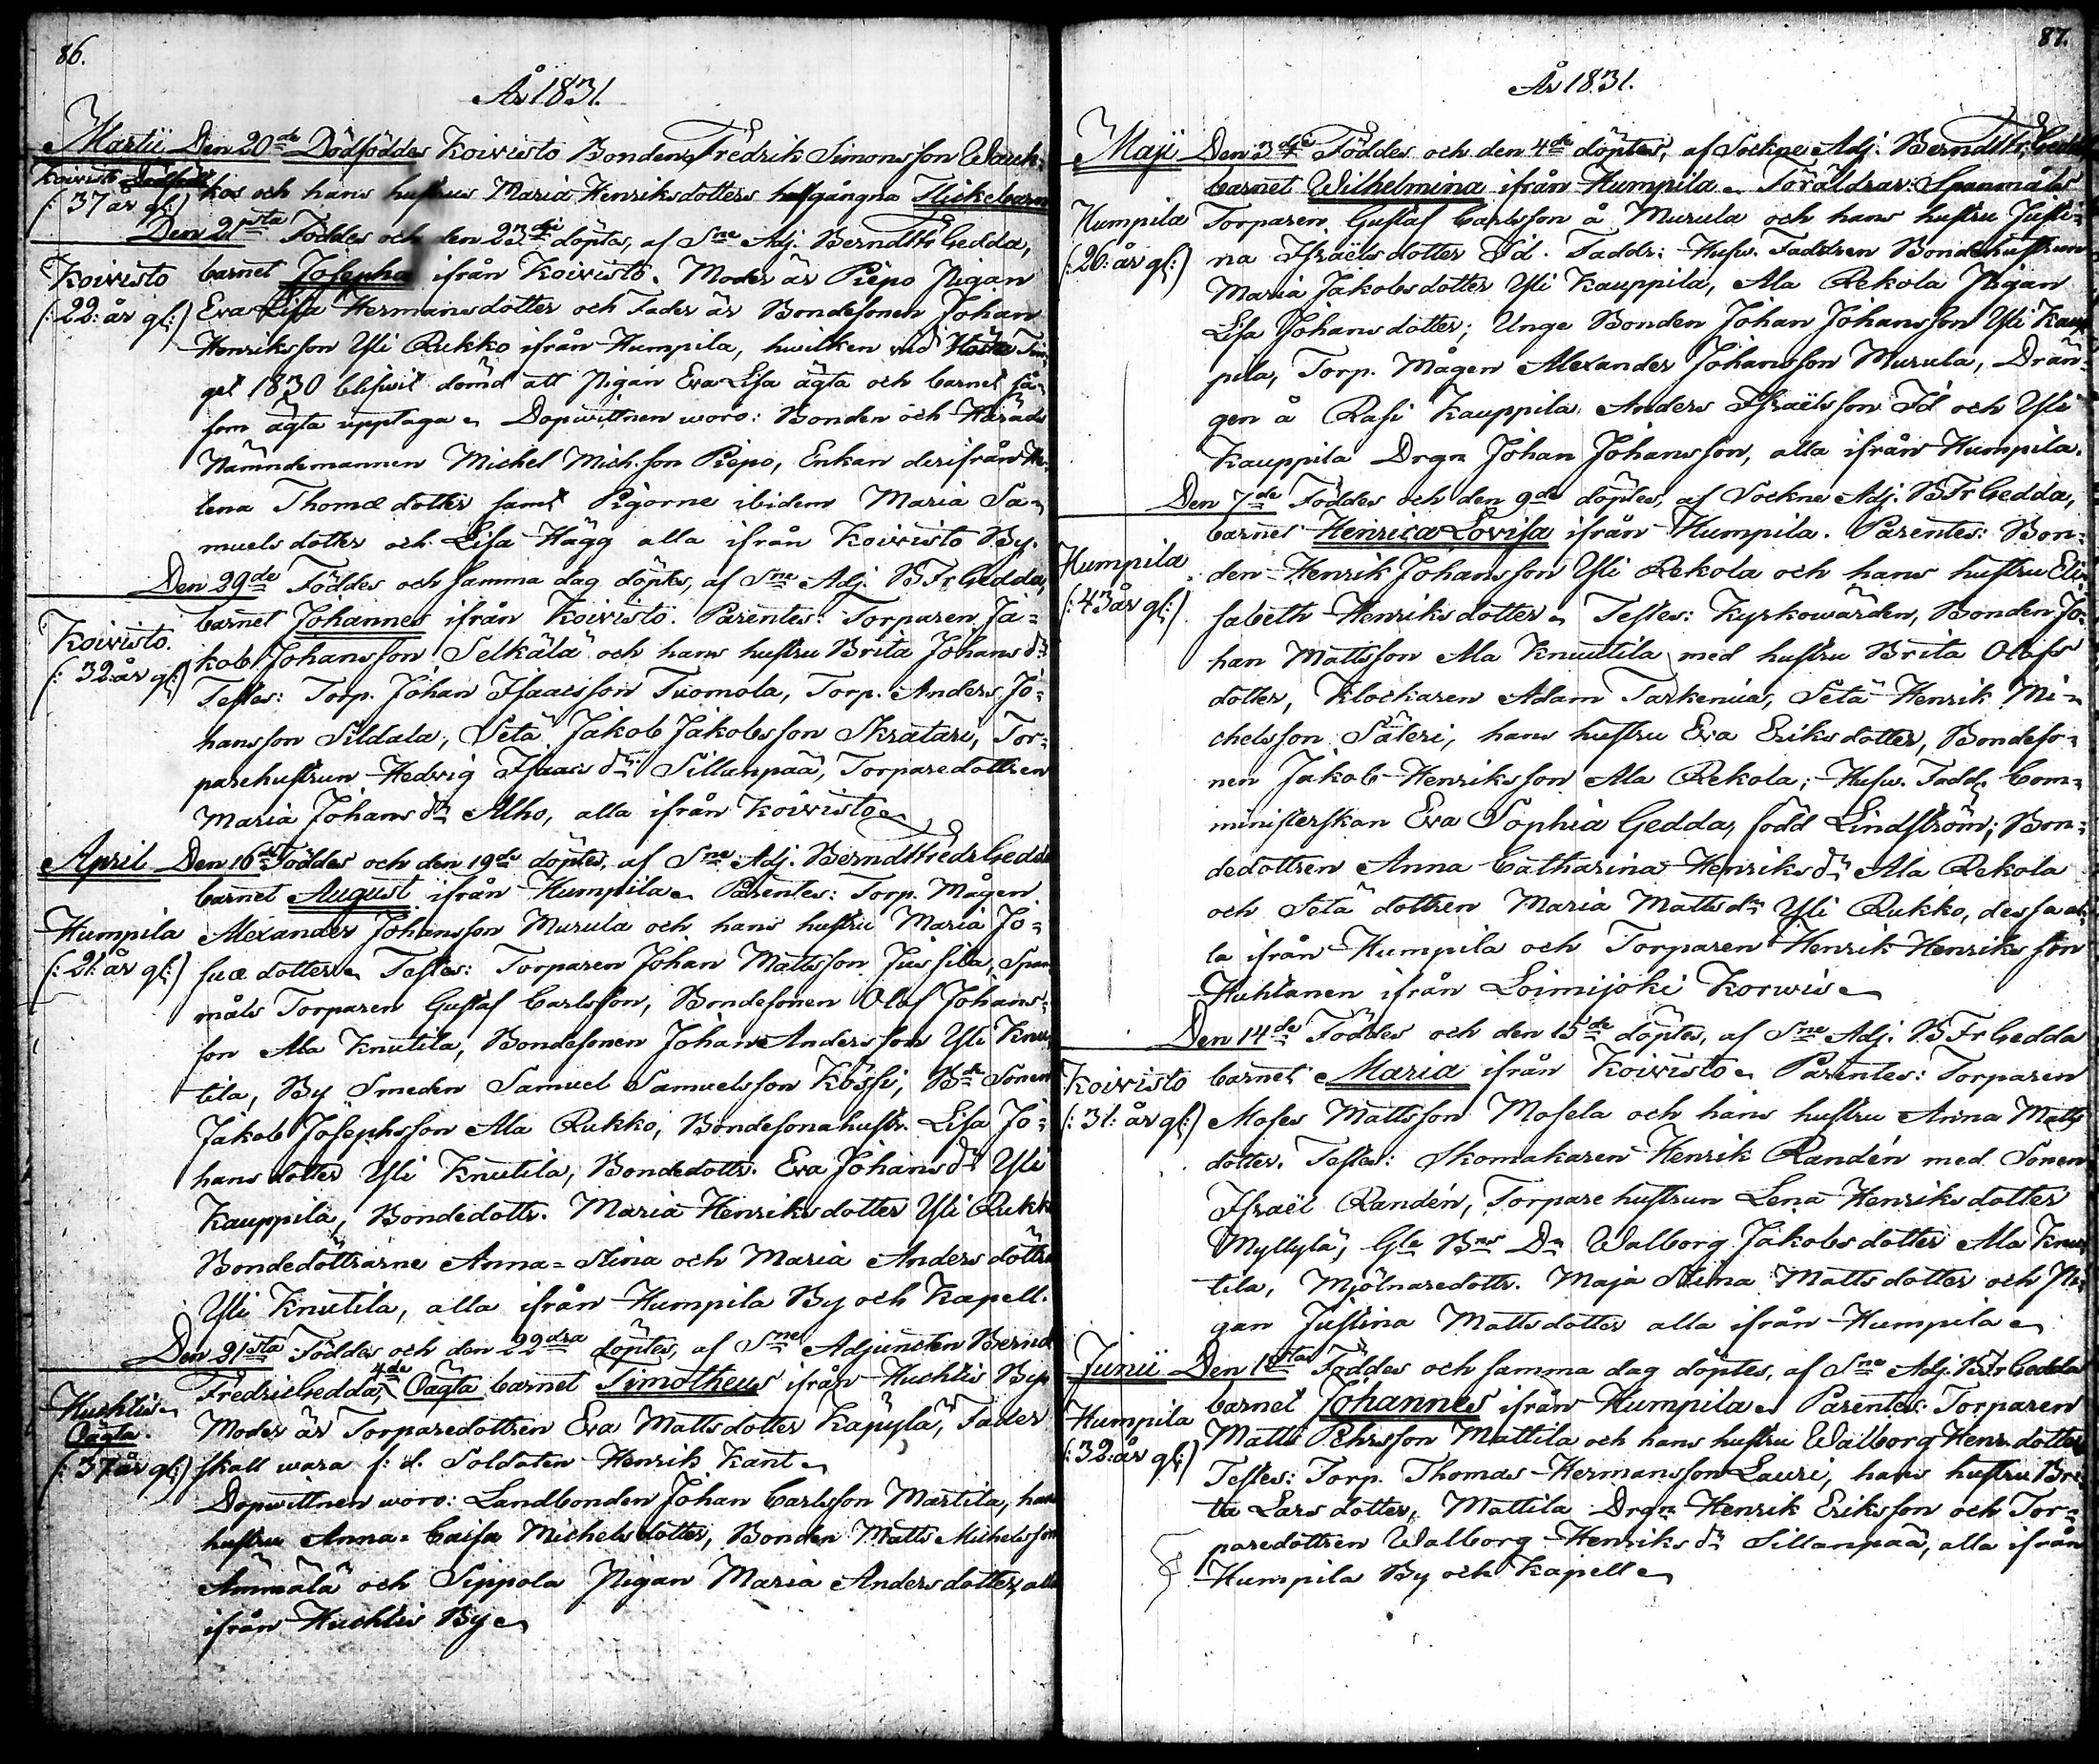 86.
År 1831.
Martii Den 20de Dödföddes Koivisto Bonden Fredrik Simonsson
Koivisto Dödfödt
(: 37 år gl:) kos och hans hustrus Maria Henriksdotters halfgångna Flickebarn
Den 21sta Föddes och den 23die döptes, af Sne Adj. Berndt Fr Gedda,
Koivisto barnet Josepha ifrån Koivisto. Moder är Piepo Pigan
(: 22: år gl:) Eva Lisa Hermansdotter och Fader är Bondesonen Johan
Henriksson Yli Rukko ifrån Humpila, hwilken vid Höste Tin
get 1830 blifwit dömd att Pigan Eva Lisa ägta och barnet så
som ägta upptaga. Dopwittnen woro: Bonden och Härads
Nämndemannen Michel Mich.son Piepo, Enkan derifrån He
lena Thomæ dotter samt Pigorne ibidem Maria Sa=
muels dotter och Lisa Hägg alla ifrån Koivisto By.
Den 29de Föddes och samma dag döptes, af Sne Adj. B Fr Gedda,
barnet Johannes ifrån Koivisto. Parentes: Torparen Ja=
Koivisto. kob Johansson Selkälä och hans hustru Brita Johans dr
(: 32: år gl:) Testes: Torp. Johan Isaacsson Tuomola, Torp. Anders Jo=
hansson Sildala, Setä Jakob Jakobsson Skratari, Tor=
parehustrun Hedvig Isaacs dr Sillanpää, Torparedottren
Maria Johans dr Alho, alla ifrån Koivisto
April Den 16de Föddes och den 19de döptes, af Sne Adj. Berndt Fredr Gedda
barnet August ifrån Humpila. Parentes: Torp. Mågen
Humpila Alexander Johansson Murula och hans hustru Maria Jo=
(: 21: år gl:) suæ dotter. Testes: Torparen Johan Mattsson Jussila, Span
måls Torparen Gustaf Carlsson, Bondesonen Olof Johans=
son Ala Knutila, Bondesonen Johan Andersson Yli Knu
tila, By Smeden Samuel Samuelsson Kössi, Bde Sonen
Jakob Josephsson Ala Rukko, Bondesonahustr. Lisa Jo=
hans dotter Yli Knutila, Bondedottr. Eva Johans dr Yli
Kauppila, Bondedottr. Maria Henriksdotter Yli Rukk
Bondedöttrarne Anna=Stina och Maria Anders döttr
Yli Knutila, alla ifrån Humpila By och Kapell.
Den 21sta Föddes och den 22dra döptes, af Sne Adjuncten Bernd
Fredric Gedda, 4de Oägta barnet Timotheus ifrån Huchtis By
Huchtis Moder är Torparedottren Eva Mattsdotter Käpylä, Fader
Oägta.
(: 37 år gl:) skall wara f: d. Soldaten Henrik Kant
Dopwittnen woro: Landbonden Johan Carlsson Martila, hans
hustru Anna=Caisa Michelsdotter, Bonden Matts Michelsson
Ämmälä och Sippola Pigan Maria Andersdotter, alla
ifrån Huchtis By
87.
År 1831.
Maji Den 3die Föddes och den 4de döptes, af Sockne Adj. Berndt Fr. Gedda
barnet Wilhelmina ifrån Humpila. Föräldrar: Spanmåls
Humpila Torparen Gustaf Carlsson å Murula och hans hustru Justi=
(: 26: år gl:) na Israëlsdotter Id. Faddr: Hufw. Faddren Bondehustrun
Maria Jakobsdotter Yli Kauppila, Ala Rekola Pigan
Lisa Johansdotter; Unge Bonden Johan Johansson Yli Kaup
pila, Torp. Mågen Alexander Johansson Murula, Drän=
gen å Rasi Kauppila Anders Israëlsson Id och Yli
Kauppila Drgn Johan Johansson, alla ifrån Humpila.
Den 7de Föddes och den 9de döptes, af Sockne Adj. B Fr Gedda,
barnet Henrica Lovisa ifrån Humpila. Parentes: Bon=
Humpila den Henrik Johansson Yli Rekola och hans hustru Eli
(: 43 år gl:) sabeth Henriksdotter. Testes: Kyrkowärden, Bonden Jo=
han Mattsson Ala Knuutila med hustru Brita Olofs
dotter, Klockaren Adam Tarkenius, Setä Henrik Mi=
chelsson Säteri, hans hustru Eva Eriksdotter, Bondeso=
nen Jakob Henriksson Ala Rekola; Hufw. Fadd. Com=
ministerskan Eva Sophia Gedda, född Lindström; Bon=
dedottren Anna Catharina Henriks dr Ala Rekola
och Setä dottren Maria Matts dr Yli Rukko, dessa al
la ifrån Humpila och Torparen Henrik Henriksson
Huhtanen ifrån Loimijoki Korwis
Den 14de Föddes och den 15de döptes, af Sne Adj. B Fr Gedda
Koivisto barnet Maria ifrån Koivisto. Parentes: Torparen
(: 31: år gl:) Moses Mattsson Mosela och hans hustru Anna Matts
dotter. Testes: Skomakaren Henrik Randén med Sonen
Israël Randén, Torparehustrun Lena Henriksdotter
Myllylä, Gle Bns Dr Walborg Jakobsdotter Ala Knu
tila, Mjölnaredottr. Maja Stina Mattsdotter och Pi=
gan Justina Mattsdotter alla ifrån Humpila
Junii Den 1sta Föddes och samma dag döptes, af Sne Adj. B Fr Gedda
barnet Johannes ifrån Humpila. Parentes: Torparen
Humpila Matts Pehrsson Mattila och hans hustru Walborg Henr. dotter
(: 32: år gl:) Testes: Torp. Thomas Hermansson Lauri, hans hustru Bri
ta Lars dotter, Mattila Drgn Henrik Eriksson och Tor=
paredottren Walborg Henriks dr Sillanpää, alla ifrån
Humpila By och Kapell